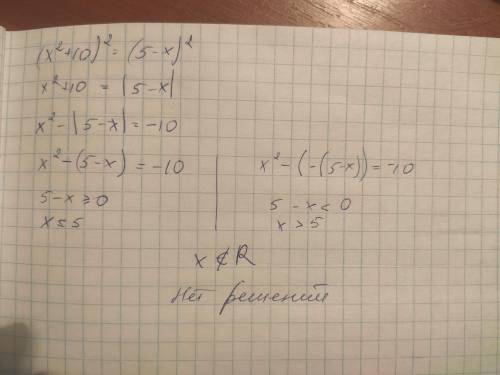 (x²+10)² = (5-x)²
x²+10 = |5-x|
x²-|5-x| = -10
x²-(5-x) = -10
5-x ≥ 0
x ≤ 5
x²-(-(5-x)) = -10
5-x < 0
x > 5
x ∉ R
Нет решений